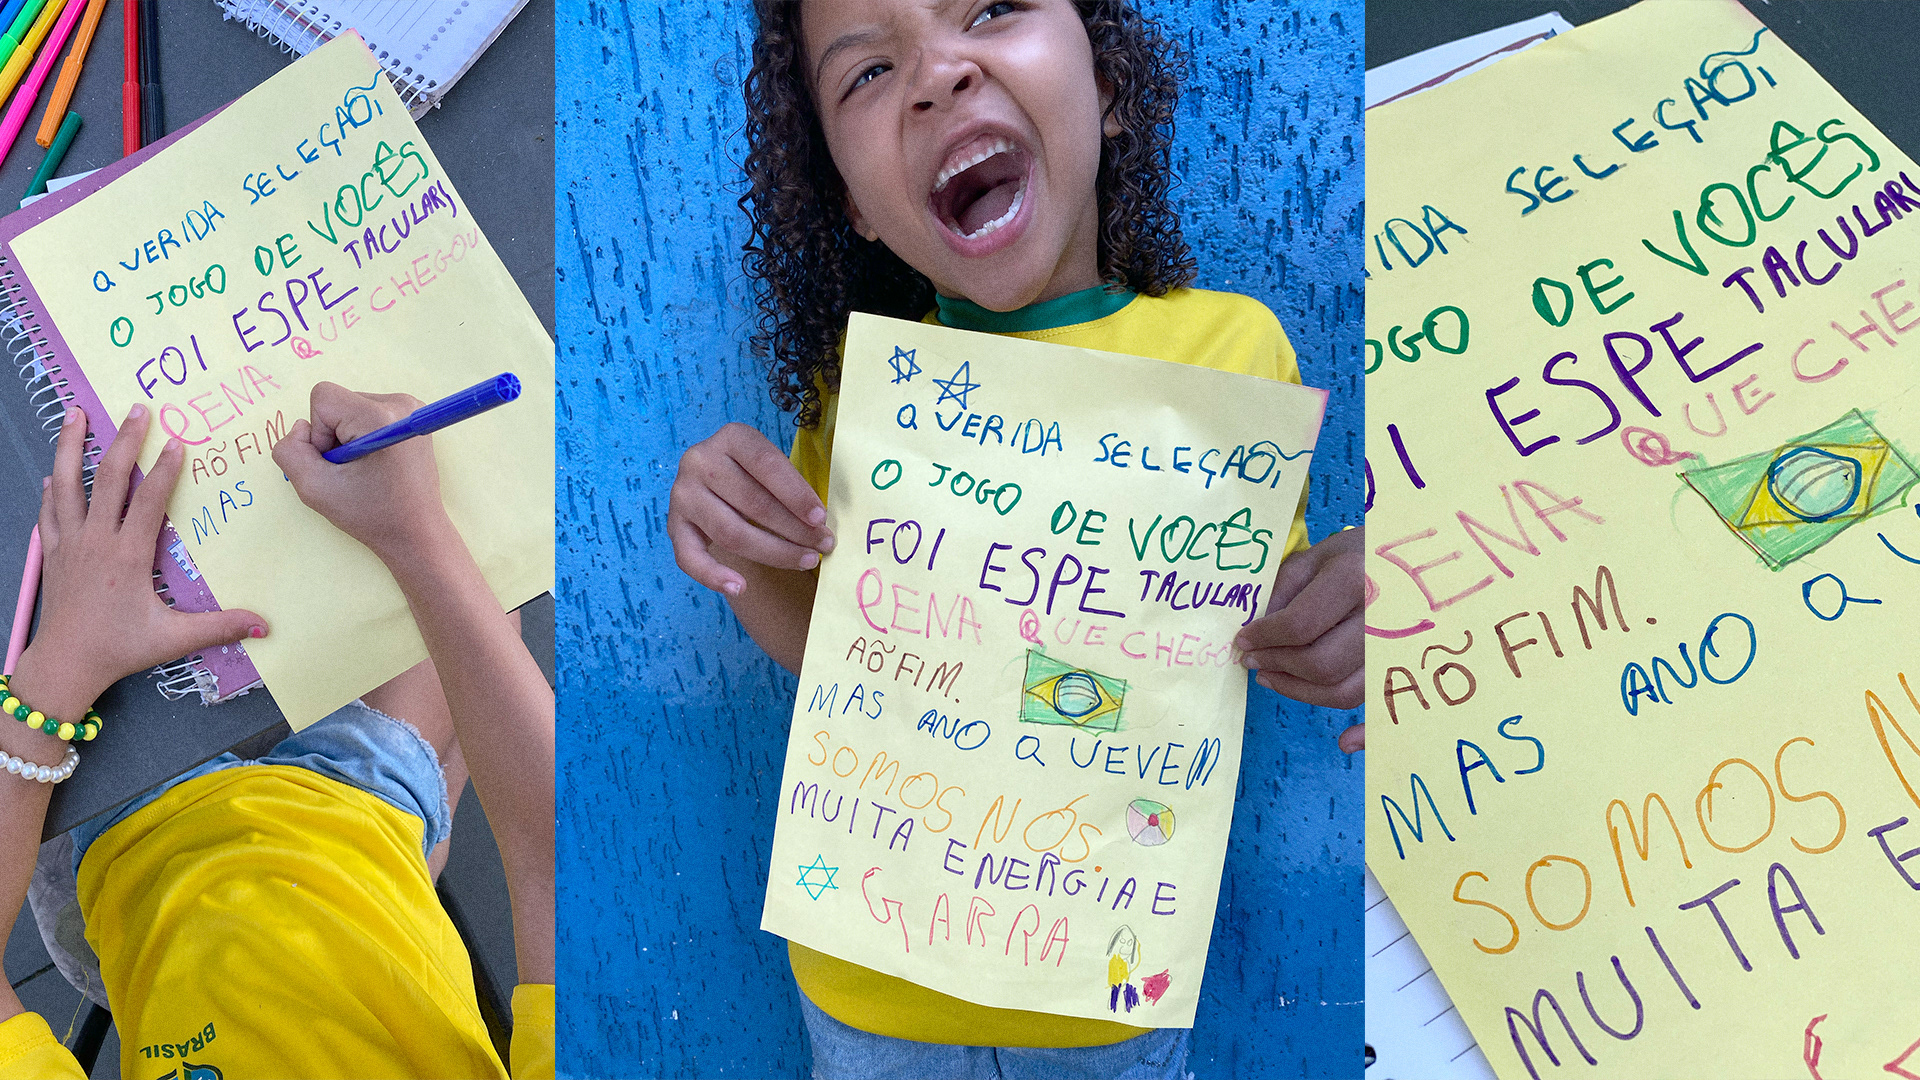 QVERIDA SELEÇAÕ,
O JOGO DE VOCÊS
FOI ESPE TACULAR,
PENA QUE CHEGOU
AÕ FIM.
MAS
BRASIL
QVERIDA SELEÇAÕ,
O JOGO DE VOCÊS
FOI ESPE TACULAR,
PENA QUE CHEGOU
AÕ FIM.
MAS ANO QUEVEM
SOMOS NÓS.
MUITA ENERGIA E
GARRA
RIDA SELEÇAÕ,
OGO DE VOCÊS
OI ESPE TACULAR
PENA QUE CHE
AÕ FIM.
MAS ANO QU
SOMOS N
MUITA E